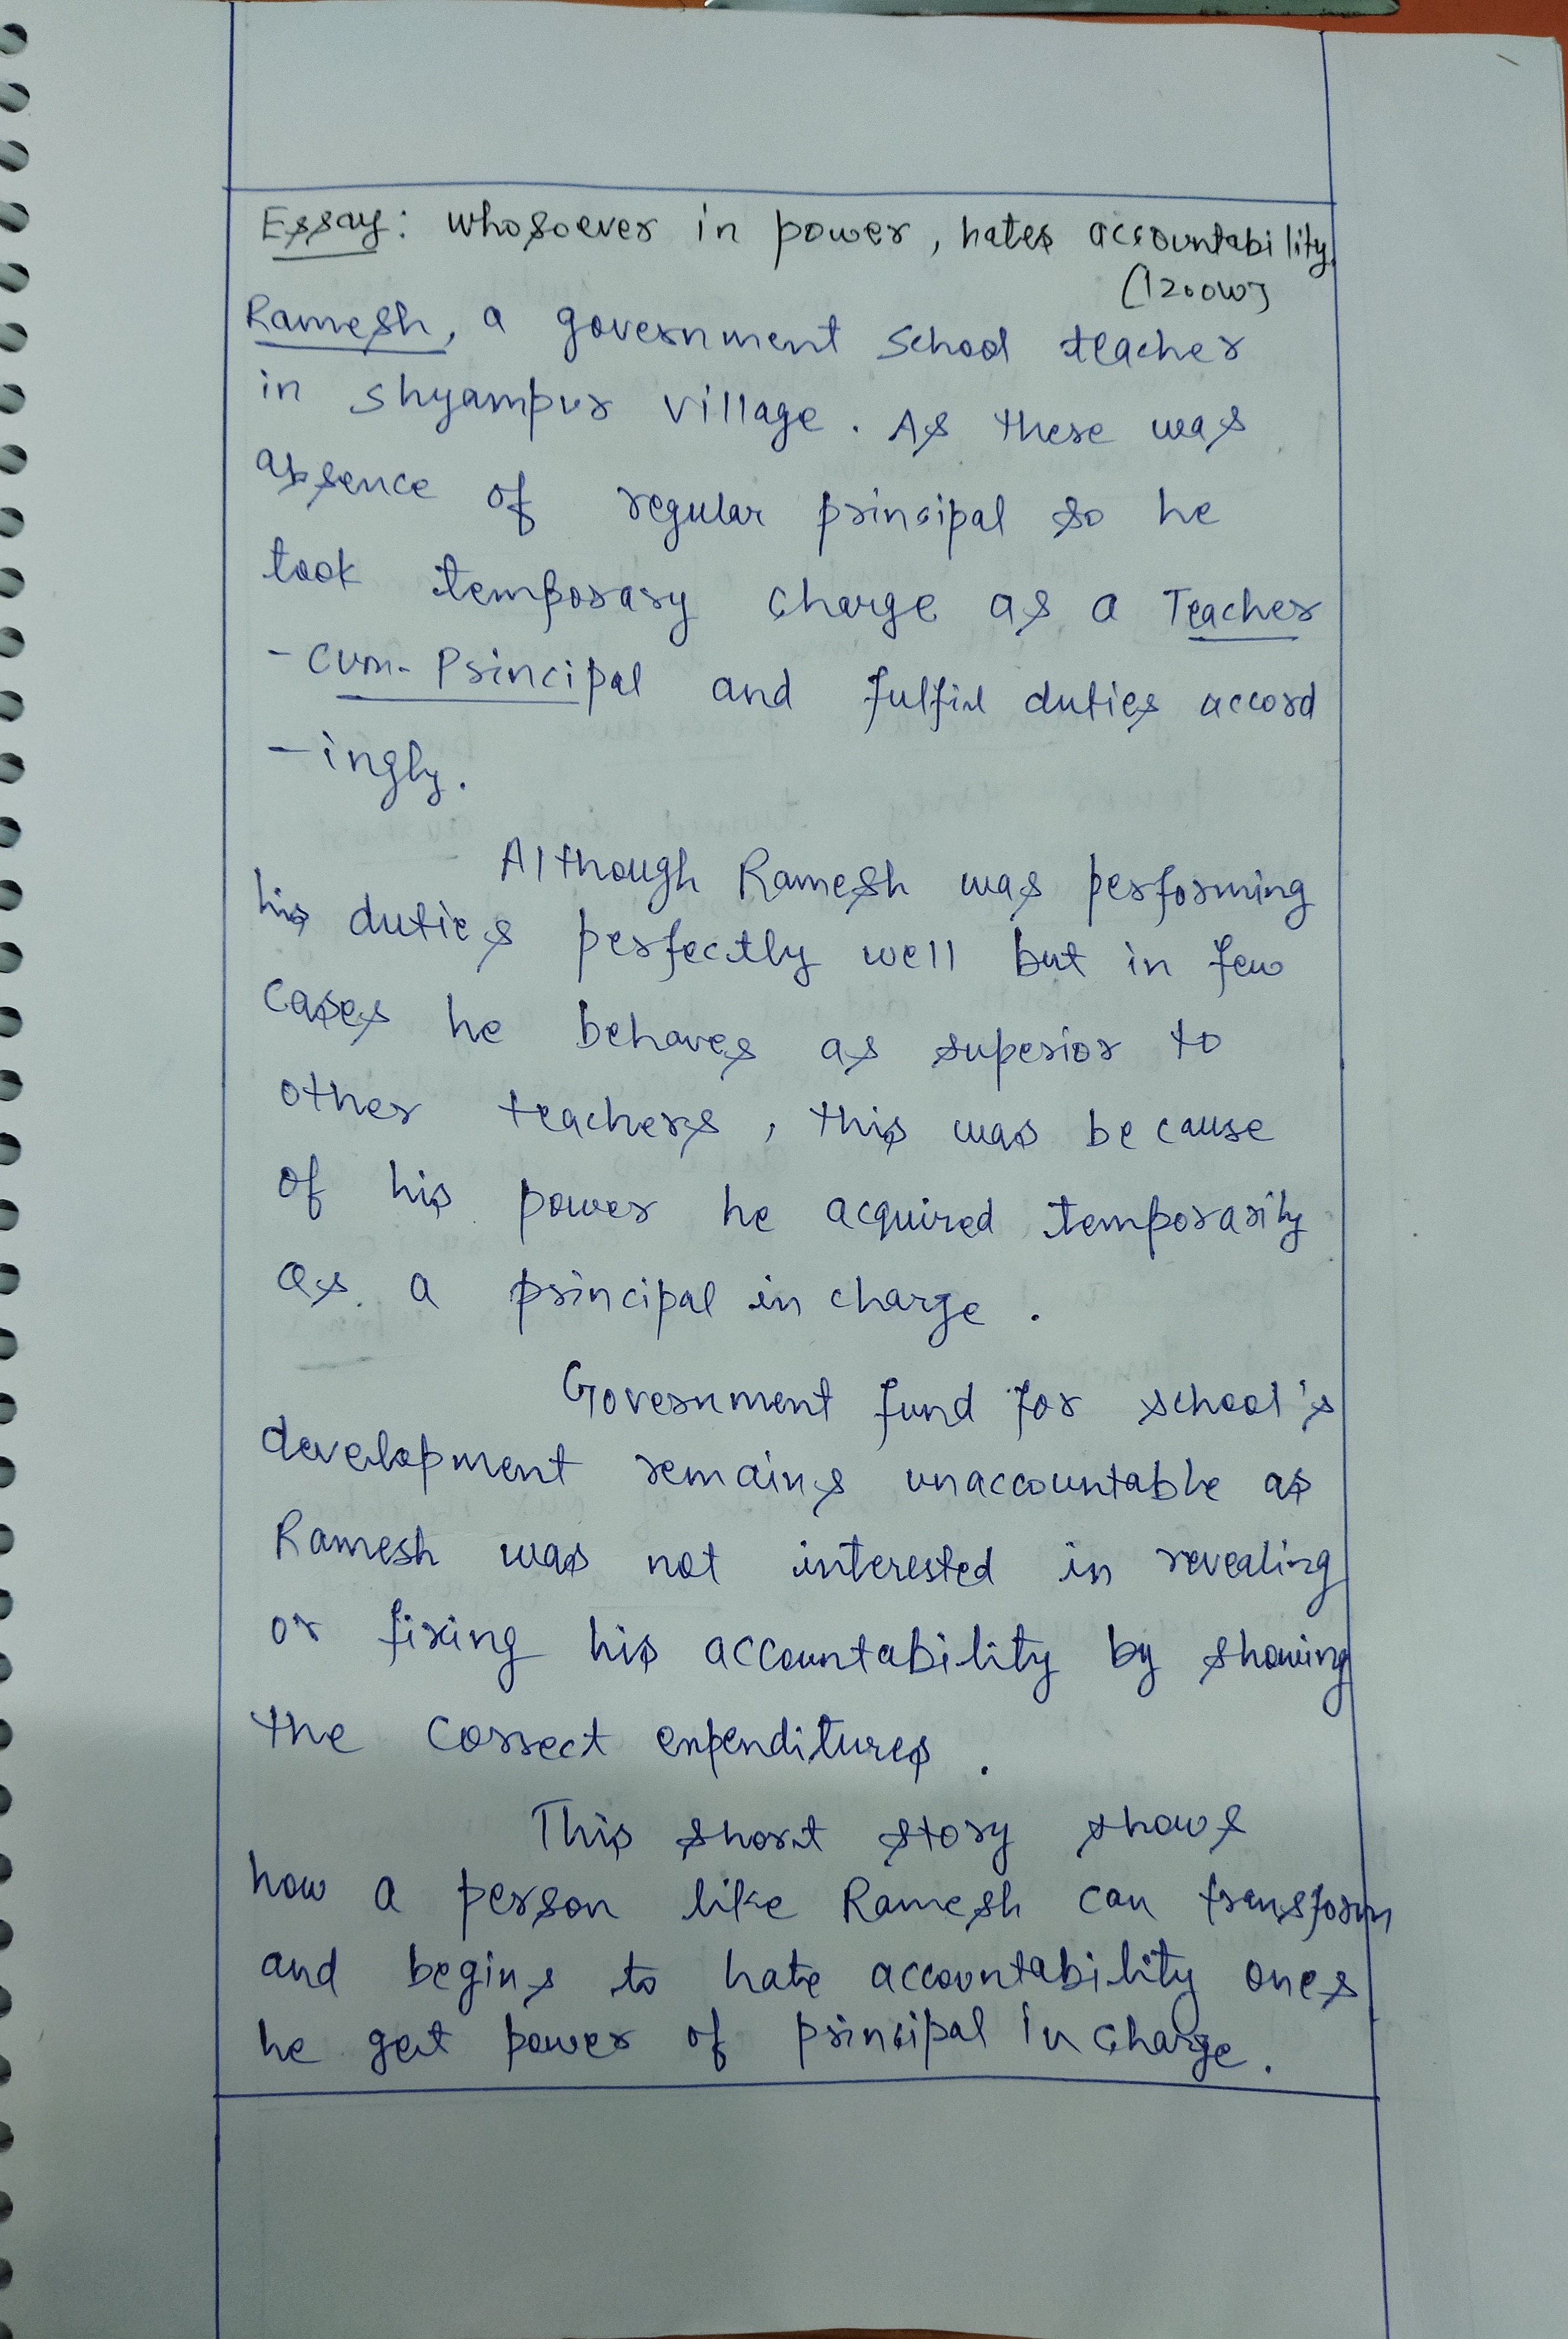 Essay: whosoever in power, hates accountability.
(1200W)
Ramesh, a government School teacher
in shyampur village. As there was
absence of regular principal so he
took temporary charge as a Teacher
-cum-Principal and fulfil duties accord
-ingly.
Although Ramesh was performing
his duties perfectly well but in few
cases he behaves as superior to
other teachers, this was because
of his power he acquired temporarily
as a principal in charge.
Government fund for school's
development remains unaccountable as
Ramesh was not interested in revealing
or fixing his accountability by showing
the correct expenditures.
This short story shows
how a person like Ramesh can transform
and begins to hate accountability ones
he get power of principal in charge.